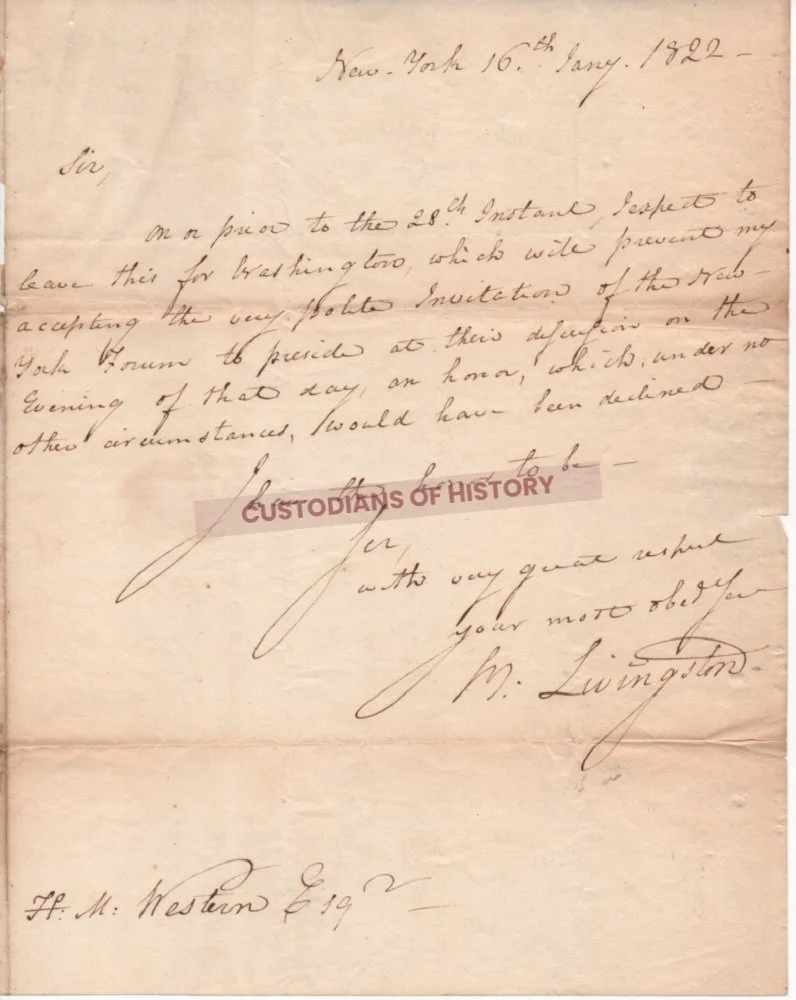 New-York 16.th Jany. 1822 -
Sir,
on or prior to the 28.th Instant, I expect to
leave this for Washington, which will prevent my
accepting the very polite Invitation of the New-
York Forum to preside at their discussion on the
Evening of that day, an honor, which, under no
other circumstances, would have been declined -
I have the honor to be -
CUSTODIANS OF HISTORY
Sir,
with very great respect
your most obed Ser
M: Livingston
H: M: Western Esqr -